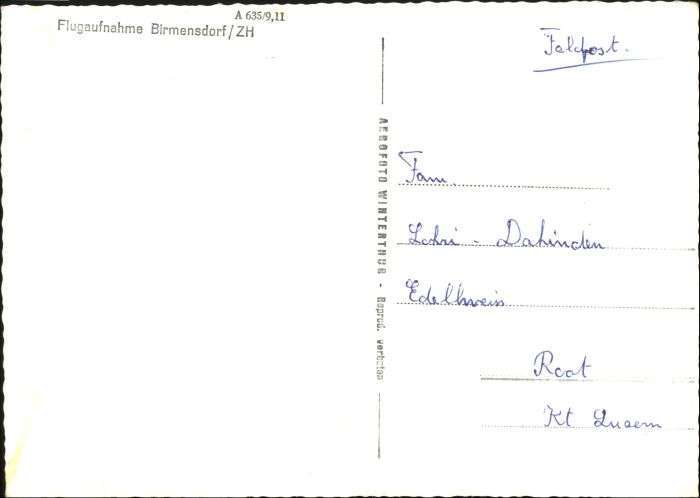 A 635/9,11
Flugaufnahme Birmensdorf/ZH
AEROFOTO WINTERTHUR - Reprod. verboten
Feldpost.
Fam.
Lohri - Dahinden
Edelweiss
Root
Kt Luzern